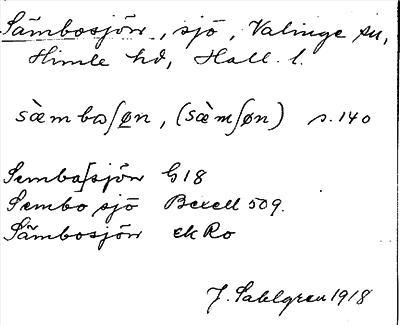 Sämbosjön, sjö, Valinge sn,
Himle hd, Hall. l.
sæ̀mbɷʃøn, (sæ̀mʃøn) s. 140
Semba[sjön G18
Sembo sjö Bexell 509.
Sämbosjön ekRo
J. Sahlgren 1918